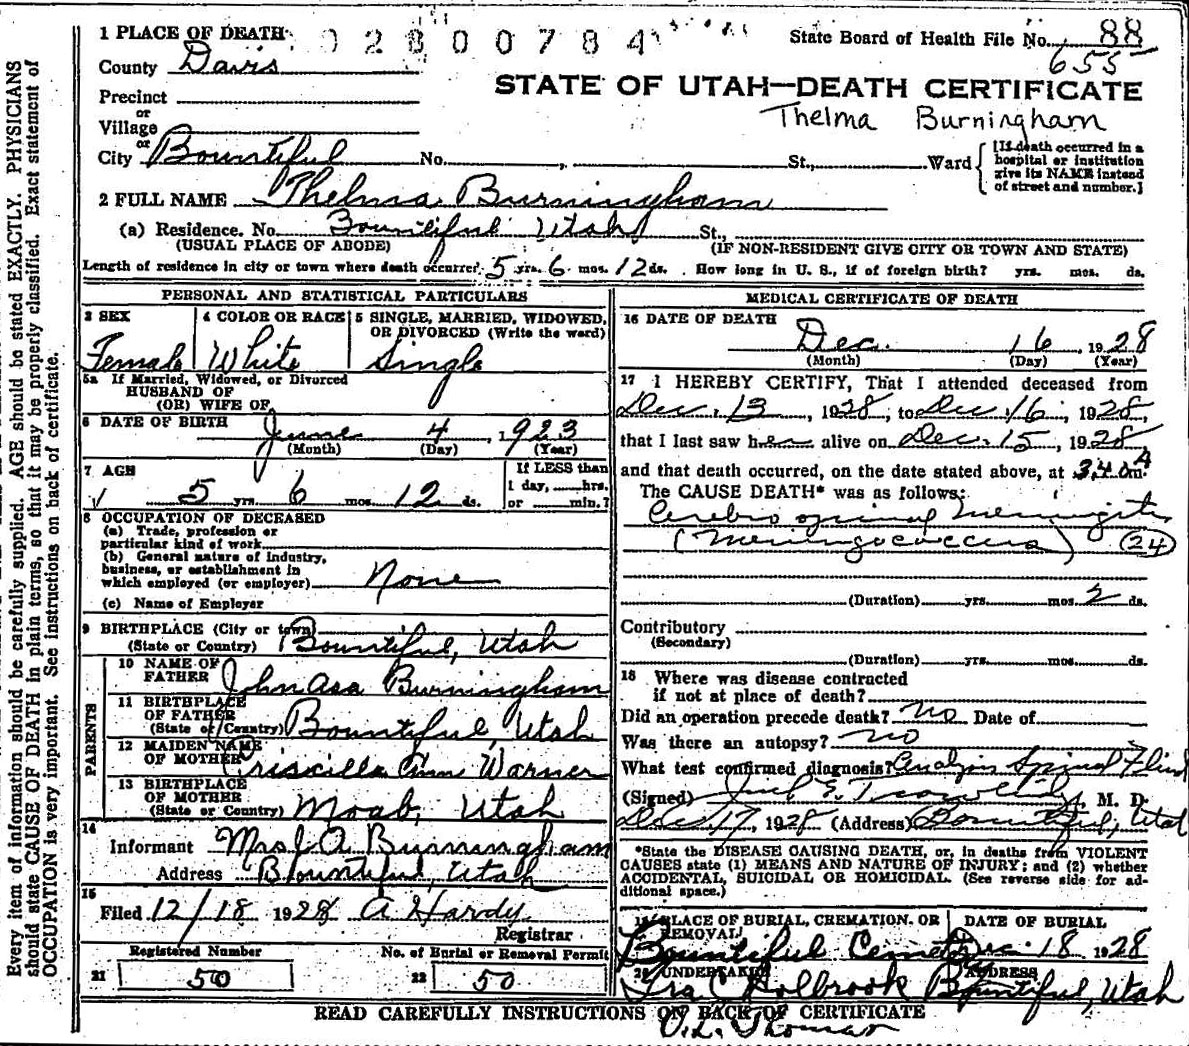 1 PLACE OF DEATH
02800784
State Board of Health File No. 88
655
County Davis
STATE OF UTAH—DEATH CERTIFICATE
Precinct
or
Village
Thelma Burningham
or
City Bountiful No. , St., Ward
[If death occurred in a hospital or institution give its NAME instead of street and number.]
2 FULL NAME Thelma Burningham
(a) Residence. No. Bountiful Utah St.,
(USUAL PLACE OF ABODE) (IF NON-RESIDENT GIVE CITY OR TOWN AND STATE)
Length of residence in city or town where death occurred 5 yrs. 6 mos. 12 ds. How long in U. S., if of foreign birth? yrs. mos. ds.
PERSONAL AND STATISTICAL PARTICULARS
3 SEX 4 COLOR OR RACE 5 SINGLE, MARRIED, WIDOWED, OR DIVORCED (Write the word)
Female White Single
5a If Married, Widowed, or Divorced
HUSBAND OF
(OR) WIFE OF
6 DATE OF BIRTH June 4, 1923
(Month) (Day) (Year)
7 AGE If LESS than
1 day, hrs.
5 yrs. 6 mos. 12 ds. or min.?
8 OCCUPATION OF DECEASED
(a) Trade, profession or
particular kind of work
(b) General nature of industry,
business, or establishment in
which employed (or employer) None
(c) Name of Employer
9 BIRTHPLACE (City or town)
(State or Country) Bountiful, Utah
PARENTS
10 NAME OF
FATHER John Asa Burningham
11 BIRTHPLACE
OF FATHER
(State or Country) Bountiful, Utah
12 MAIDEN NAME
OF MOTHER Priscilla Ann Warner
13 BIRTHPLACE
OF MOTHER
(State or Country) Moab, Utah
14
Informant Mrs J. A. Burningham
Address Bountiful, Utah
15
Filed 12/18 1928 A Hardy
Registrar
Registered Number No. of Burial or Removal Permit
21 50 22 50
MEDICAL CERTIFICATE OF DEATH
16 DATE OF DEATH
Dec. 16, 1928
(Month) (Day) (Year)
17 I HEREBY CERTIFY, That I attended deceased from
Dec. 13, 1928, to Dec. 16, 1928,
that I last saw her alive on Dec. 15, 1928
and that death occurred, on the date stated above, at 3:40 A m.
The CAUSE DEATH* was as follows:
Cerebro spinal Meningitis
(Meningococcus) (24)
(Duration) yrs. mos. 2 ds.
Contributory
(Secondary)
(Duration) yrs. mos. ds.
18 Where was disease contracted
if not at place of death?
Did an operation precede death? No Date of
Was there an autopsy? No
What test confirmed diagnosis? Spinal Fluid
(Signed) M. D.
Dec 17, 1928 (Address) Bountiful, Utah
*State the DISEASE CAUSING DEATH, or, in deaths from VIOLENT
CAUSES state (1) MEANS AND NATURE OF INJURY; and (2) whether
ACCIDENTAL, SUICIDAL OR HOMICIDAL. (See reverse side for ad-
ditional space.)
19 PLACE OF BURIAL, CREMATION, OR REMOVAL DATE OF BURIAL
Bountiful Cemetery Dec. 18 1928
20 UNDERTAKER ADDRESS
Ira C Holbrook Bountiful, Utah
READ CAREFULLY INSTRUCTIONS ON BACK OF CERTIFICATE
O.L. Thomas
Every item of information should be carefully supplied. AGE should be stated EXACTLY. PHYSICIANS
should state CAUSE OF DEATH in plain terms, so that it may be properly classified. Exact statement of
OCCUPATION is very important. See instructions on back of certificate.